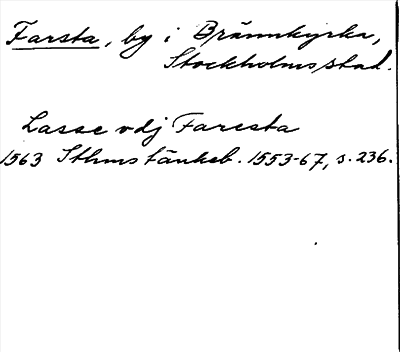 Farsta, by i Brännkyrka,
Stockholms stad.
Lasse vdj Faresta
1563 Sthms tänkeb. 1553-67, s. 236.